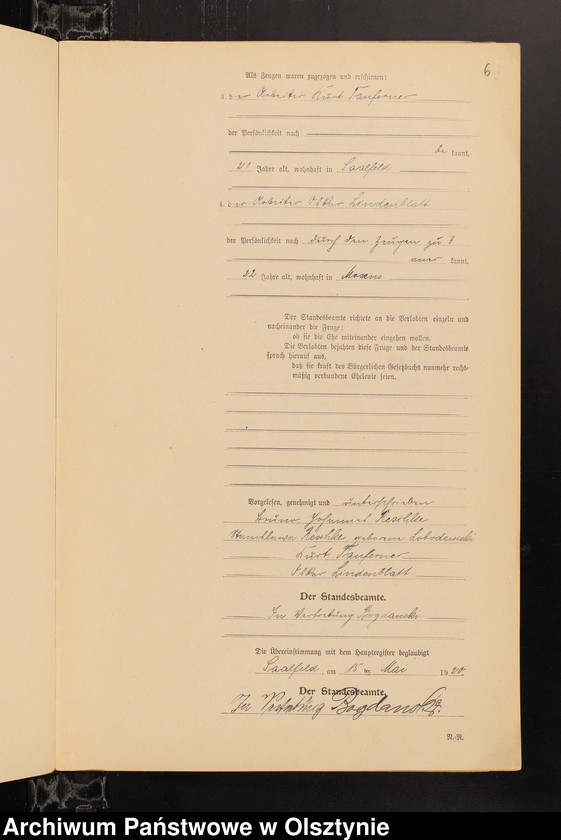 6
Als Zeugen waren zugezogen und erschienen:
3. d er Arbeiter Kurt Tanferner
der Persönlichkeit nach
be kannt,
21 Jahre alt, wohnhaft in Saalfeld
4. d er Arbeiter Oskar Lindenblatt
der Persönlichkeit nach durch den Zeugen zu 3
aner kannt,
22 Jahre alt, wohnhaft in Mosens
Der Standesbeamte richtete an die Verlobten einzeln und
nacheinander die Frage:
ob sie die Ehe miteinander eingehen wollen.
Die Verlobten bejahten diese Frage und der Standesbeamte
sprach hierauf aus,
daß sie kraft des Bürgerlichen Gesetzbuchs nunmehr recht-
mäßig verbundene Eheleute seien.
Vorgelesen, genehmigt und unterschrieben
Bruno Johannes Reschke
Stanislawa Reschke geborene
Kurt Tanferner
Oskar Lindenblatt
Der Standesbeamte.
In Vertretung Bogdanski
Die Übereinstimmung mit dem Hauptregister beglaubigt
Saalfeld, am 15 ten Mai 1920.
Der Standesbeamte.
In Vertretung Bogdanski.
N.-R.
Archiwum Państwowe w Olsztynie